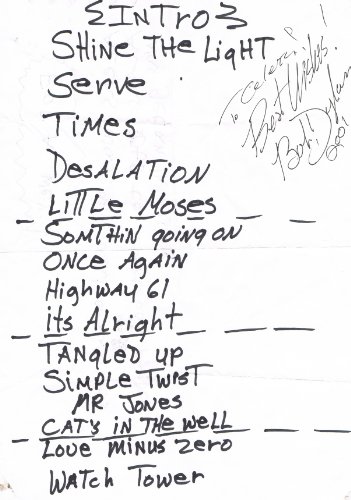 {INTRO}
SHINE THE LIGHT
Serve
TIMES
DESALATION
LITTLE MOSES
SOMTHIN going ON
ONCE AgAiN
HigHWAY 61
its Alright
TANgLED up
SIMPLE TWIST
MR JONES
CATS IN THE WELL
LOVE MINUS ZERO
WATCH TOWER
To
Best Wishes!
Bob Dylan
2001